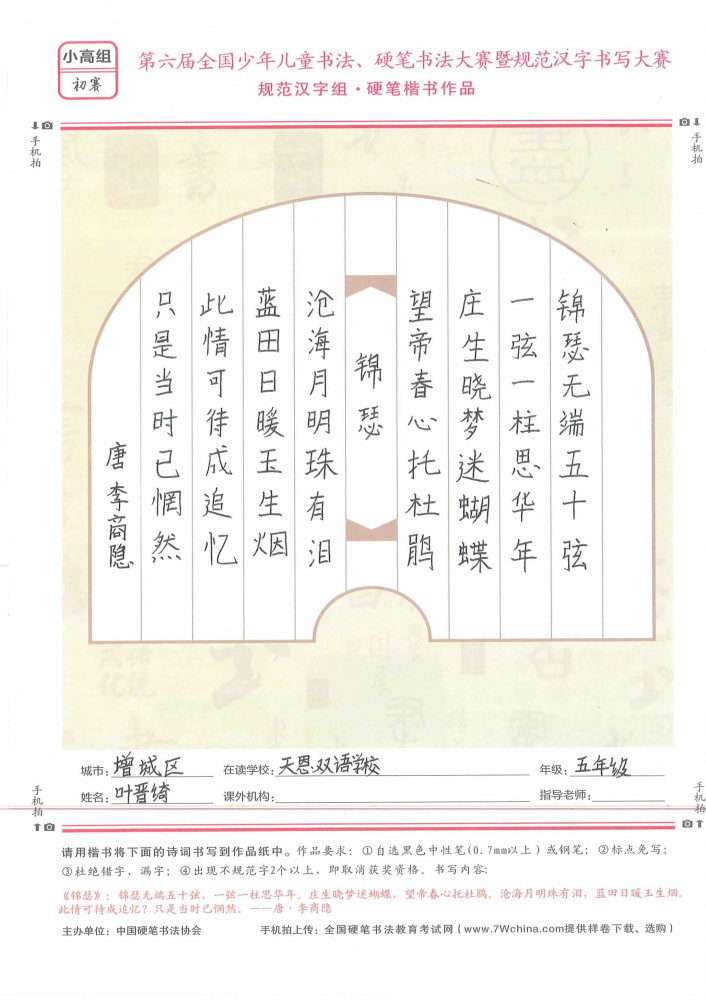 小高组
初赛
第六届全国少年儿童书法、硬笔书法大赛暨规范汉字书写大赛
规范汉字组·硬笔楷书作品
手机拍
手机拍
锦瑟无端五十弦
一弦一柱思华年
庄生晓梦迷蝴蝶
望帝春心托杜鹃
锦瑟
沧海月明珠有泪
蓝田日暖玉生烟
此情可待成追忆
只是当时已惘然
唐 李商隐
城市：增城区 在读学校：天恩双语学校 年级：五年级
姓名：叶晋绮 课外机构： 指导老师：
手机拍
手机拍
请用楷书将下面的诗词书写到作品纸中。作品要求：①自选黑色中性笔(0.7mm以上）或钢笔；②标点免写；
③杜绝错字、漏字；④出现不规范字2个以上，即取消获奖资格。书写内容：
《锦瑟》：锦瑟无端五十弦，一弦一柱思华年。庄生晓梦迷蝴蝶，望帝春心托杜鹃。沧海月明珠有泪，蓝田日暖玉生烟。
此情可待成追忆？只是当时已惘然。——唐·李商隐
主办单位：中国硬笔书法协会 手机拍上传：全国硬笔书法教育考试网（www.7Wchina.com提供样卷下载、选购）